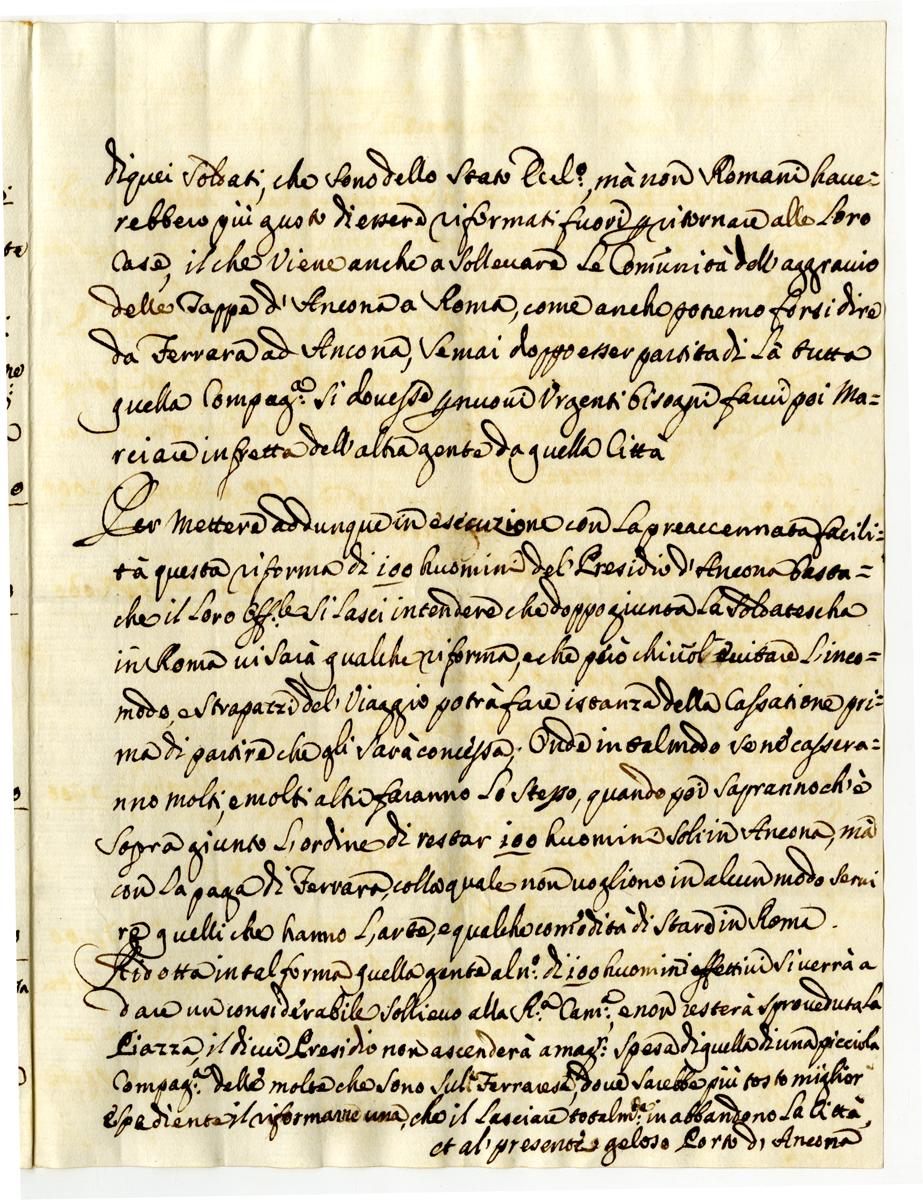 di quei Soldati, che sono dello Stato Eccl.º, mà non Romani have=
rebbero più gusto di essere riformati fuori p ritornare alle Loro
Case, il che Viene anche a Sollevare Le Comunità dell'aggravio
delle Tappe d'Ancona a Roma, come anche potremo forsi dire
da Ferrara ad Ancona, Se mai doppo esser partita di Là tutta
quella Compag.ª Si dovesse p nuovi Urgenti bisogni farvi poi Ma=
rciare in fretta dell'altra gente da quella Città
Per Mettere addunque in esecuzione con La preaccennata facili=
tà questa riforma di 100 huomini del Presidio d'Ancona basta=
che il Loro Off.le Si Lasci intendere che doppo giunta La Soldatescha
in Roma vi Sarà qualche riforma, e che però chi vol evitare L'inco=
modo, e Strapazzi del Viaggio potrà fare istanza della Cassatione pri=
ma di partire che gli Sarà concessa; Onde in tal modo Se ne cassera=
nno molti, e molti altri faranno Lo Stesso, quando poi Sapranno ch'è
Sopra giunto L'ordine di restar 100 huomini Soli in Ancona, mà
con La paga di Ferrara, colla quale non vogliono in alcun modo Servi
re quelli che hanno L'arte, e qualche comodità di Stare in Roma.
Ridotta in tal forma quella gente al nº. di 100 huomini effettivi Si verrà a
dare un considerabile Sollievo alla R.ª Cam.ª, e non resterà Sproveduta La
Piazza, il di cui Presidio non ascenderà a mag.r Spesa di quella di una picciola
Compag.ª delle molte che sono Sul Ferrarese, dove Sarebbe più tosto miglior
espediente il riformarne una, che il Lasciare totalm.te in abbandono La Città,
et al presente geloso Porto di Ancona